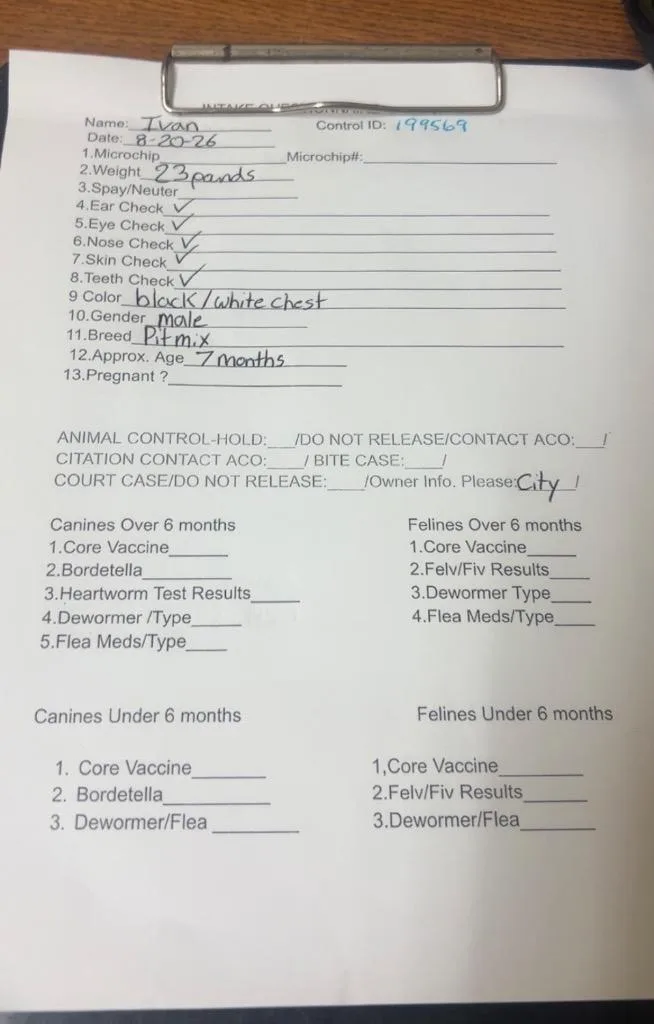 INTAKE QUESTIONNAIRE
Name: Ivan Control ID: 199569
Date: 8-20-26
1.Microchip Microchip#:
2.Weight 23 pands
3.Spay/Neuter
4.Ear Check ✓
5.Eye Check ✓
6.Nose Check ✓
7.Skin Check ✓
8.Teeth Check ✓
9 Color black/white chest
10.Gender male
11.Breed Pit mix
12.Approx. Age 7 months
13.Pregnant ?
ANIMAL CONTROL-HOLD:___/DO NOT RELEASE/CONTACT ACO:___/
CITATION CONTACT ACO:____/ BITE CASE:____/
COURT CASE/DO NOT RELEASE:____/Owner Info. Please:City /
Canines Over 6 months Felines Over 6 months
1.Core Vaccine______ 1.Core Vaccine_____
2.Bordetella_________ 2.Felv/Fiv Results____
3.Heartworm Test Results_____ 3.Dewormer Type____
4.Dewormer /Type_____ 4.Flea Meds/Type____
5.Flea Meds/Type____
Canines Under 6 months Felines Under 6 months
1. Core Vaccine_______ 1,Core Vaccine________
2. Bordetella__________ 2.Felv/Fiv Results______
3. Dewormer/Flea ________ 3.Dewormer/Flea_______